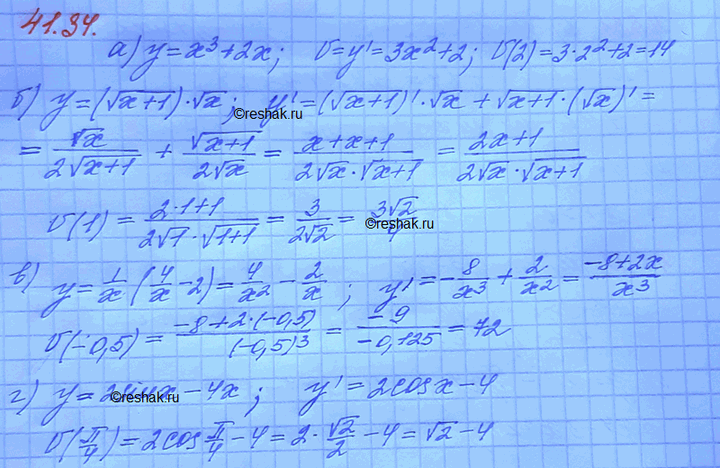 41.34.
а) y = x³ + 2x; v = y' = 3x² + 2; v(2) = 3·2² + 2 = 14
б) y = (√x+1)·√x; y' = (√x+1)'·√x + √x+1·(√x)' =
©reshak.ru
= √x/2√x+1 + √x+1/2√x = x+x+1/2√x·√x+1 = 2x+1/2√x·√x+1
v(1) = 2·1+1/2√1·√1+1 = 3/2√2 = 3√2/4
©reshak.ru
в) y = 1/x (4/x - 2) = 4/x² - 2/x; y' = -8/x³ + 2/x² = -8+2x/x³
v(-0,5) = -8+2·(-0,5)/(-0,5)³ = -9/-0,125 = 72
г) y = 2sinx - 4x; y' = 2cosx - 4
©reshak.ru
v(π/4) = 2cos π/4 - 4 = 2·√2/2 - 4 = √2 - 4